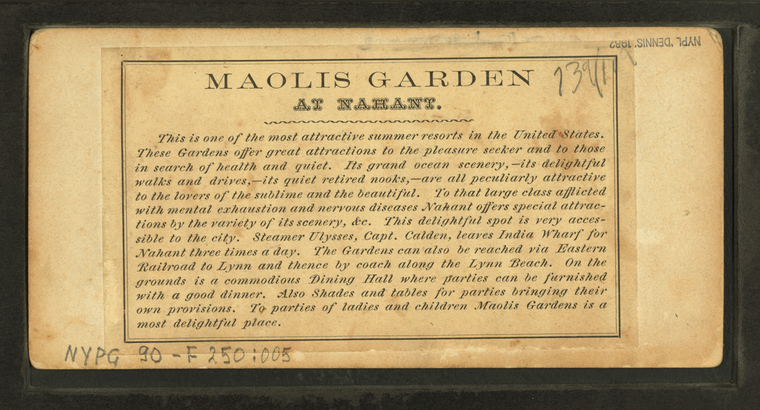 NYPL 'DENNIS' 1982
MAOLIS GARDEN
AT NAHANT.
This is one of the most attractive summer resorts in the United States.
These Gardens offer great attractions to the pleasure seeker and to those
in search of health and quiet. Its grand ocean scenery,—its delightful
walks and drives,—its quiet retired nooks,—are all peculiarly attractive
to the lovers of the sublime and the beautiful. To that large class afflicted
with mental exhaustion and nervous diseases Nahant offers special attrac-
tions by the variety of its scenery, &c. This delightful spot is very acces-
sible to the city. Steamer Ulysses, Capt. Calden, leaves India Wharf for
Nahant three times a day. The Gardens can also be reached via Eastern
Railroad to Lynn and thence by coach along the Lynn Beach. On the
grounds is a commodious Dining Hall where parties can be furnished
with a good dinner. Also Shades and tables for parties bringing their
own provisions. To parties of ladies and children Maolis Gardens is a
most delightful place.
NYPG 90-F250:005